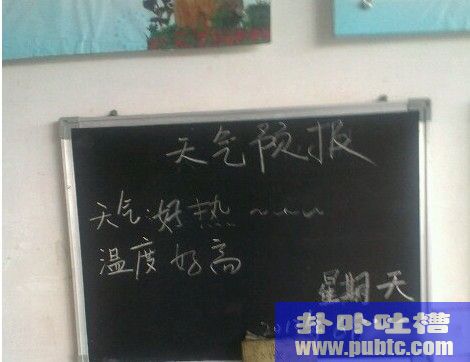 天气预报
天气:好热~~~~
温度好高
星期天
201
卟卟吐槽
www.pubtc.com